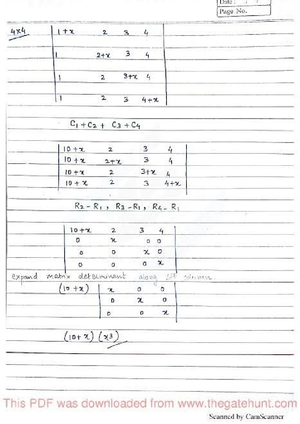 Date:
Page No.
4x4 | 1+x 2 3 4 |
| 1 2+x 3 4 |
| 1 2 3+x 4 |
| 1 2 3 4+x |
C1 + C2 + C3 + C4
| 10+x 2 3 4 |
| 10+x 2+x 3 4 |
| 10+x 2 3+x 4 |
| 10+x 2 3 4+x |
R2 - R1 , R3 - R1 , R4 - R1
| 10+x 2 3 4 |
| 0 x 0 0 |
| 0 0 x 0 |
| 0 0 0 x |
expand matrix determinant along
(10+x) | x 0 0 |
| 0 x 0 |
| 0 0 x |
(10+x) (x3)
This PDF was downloaded from www.thegatehunt.com
Scanned by CamScanner